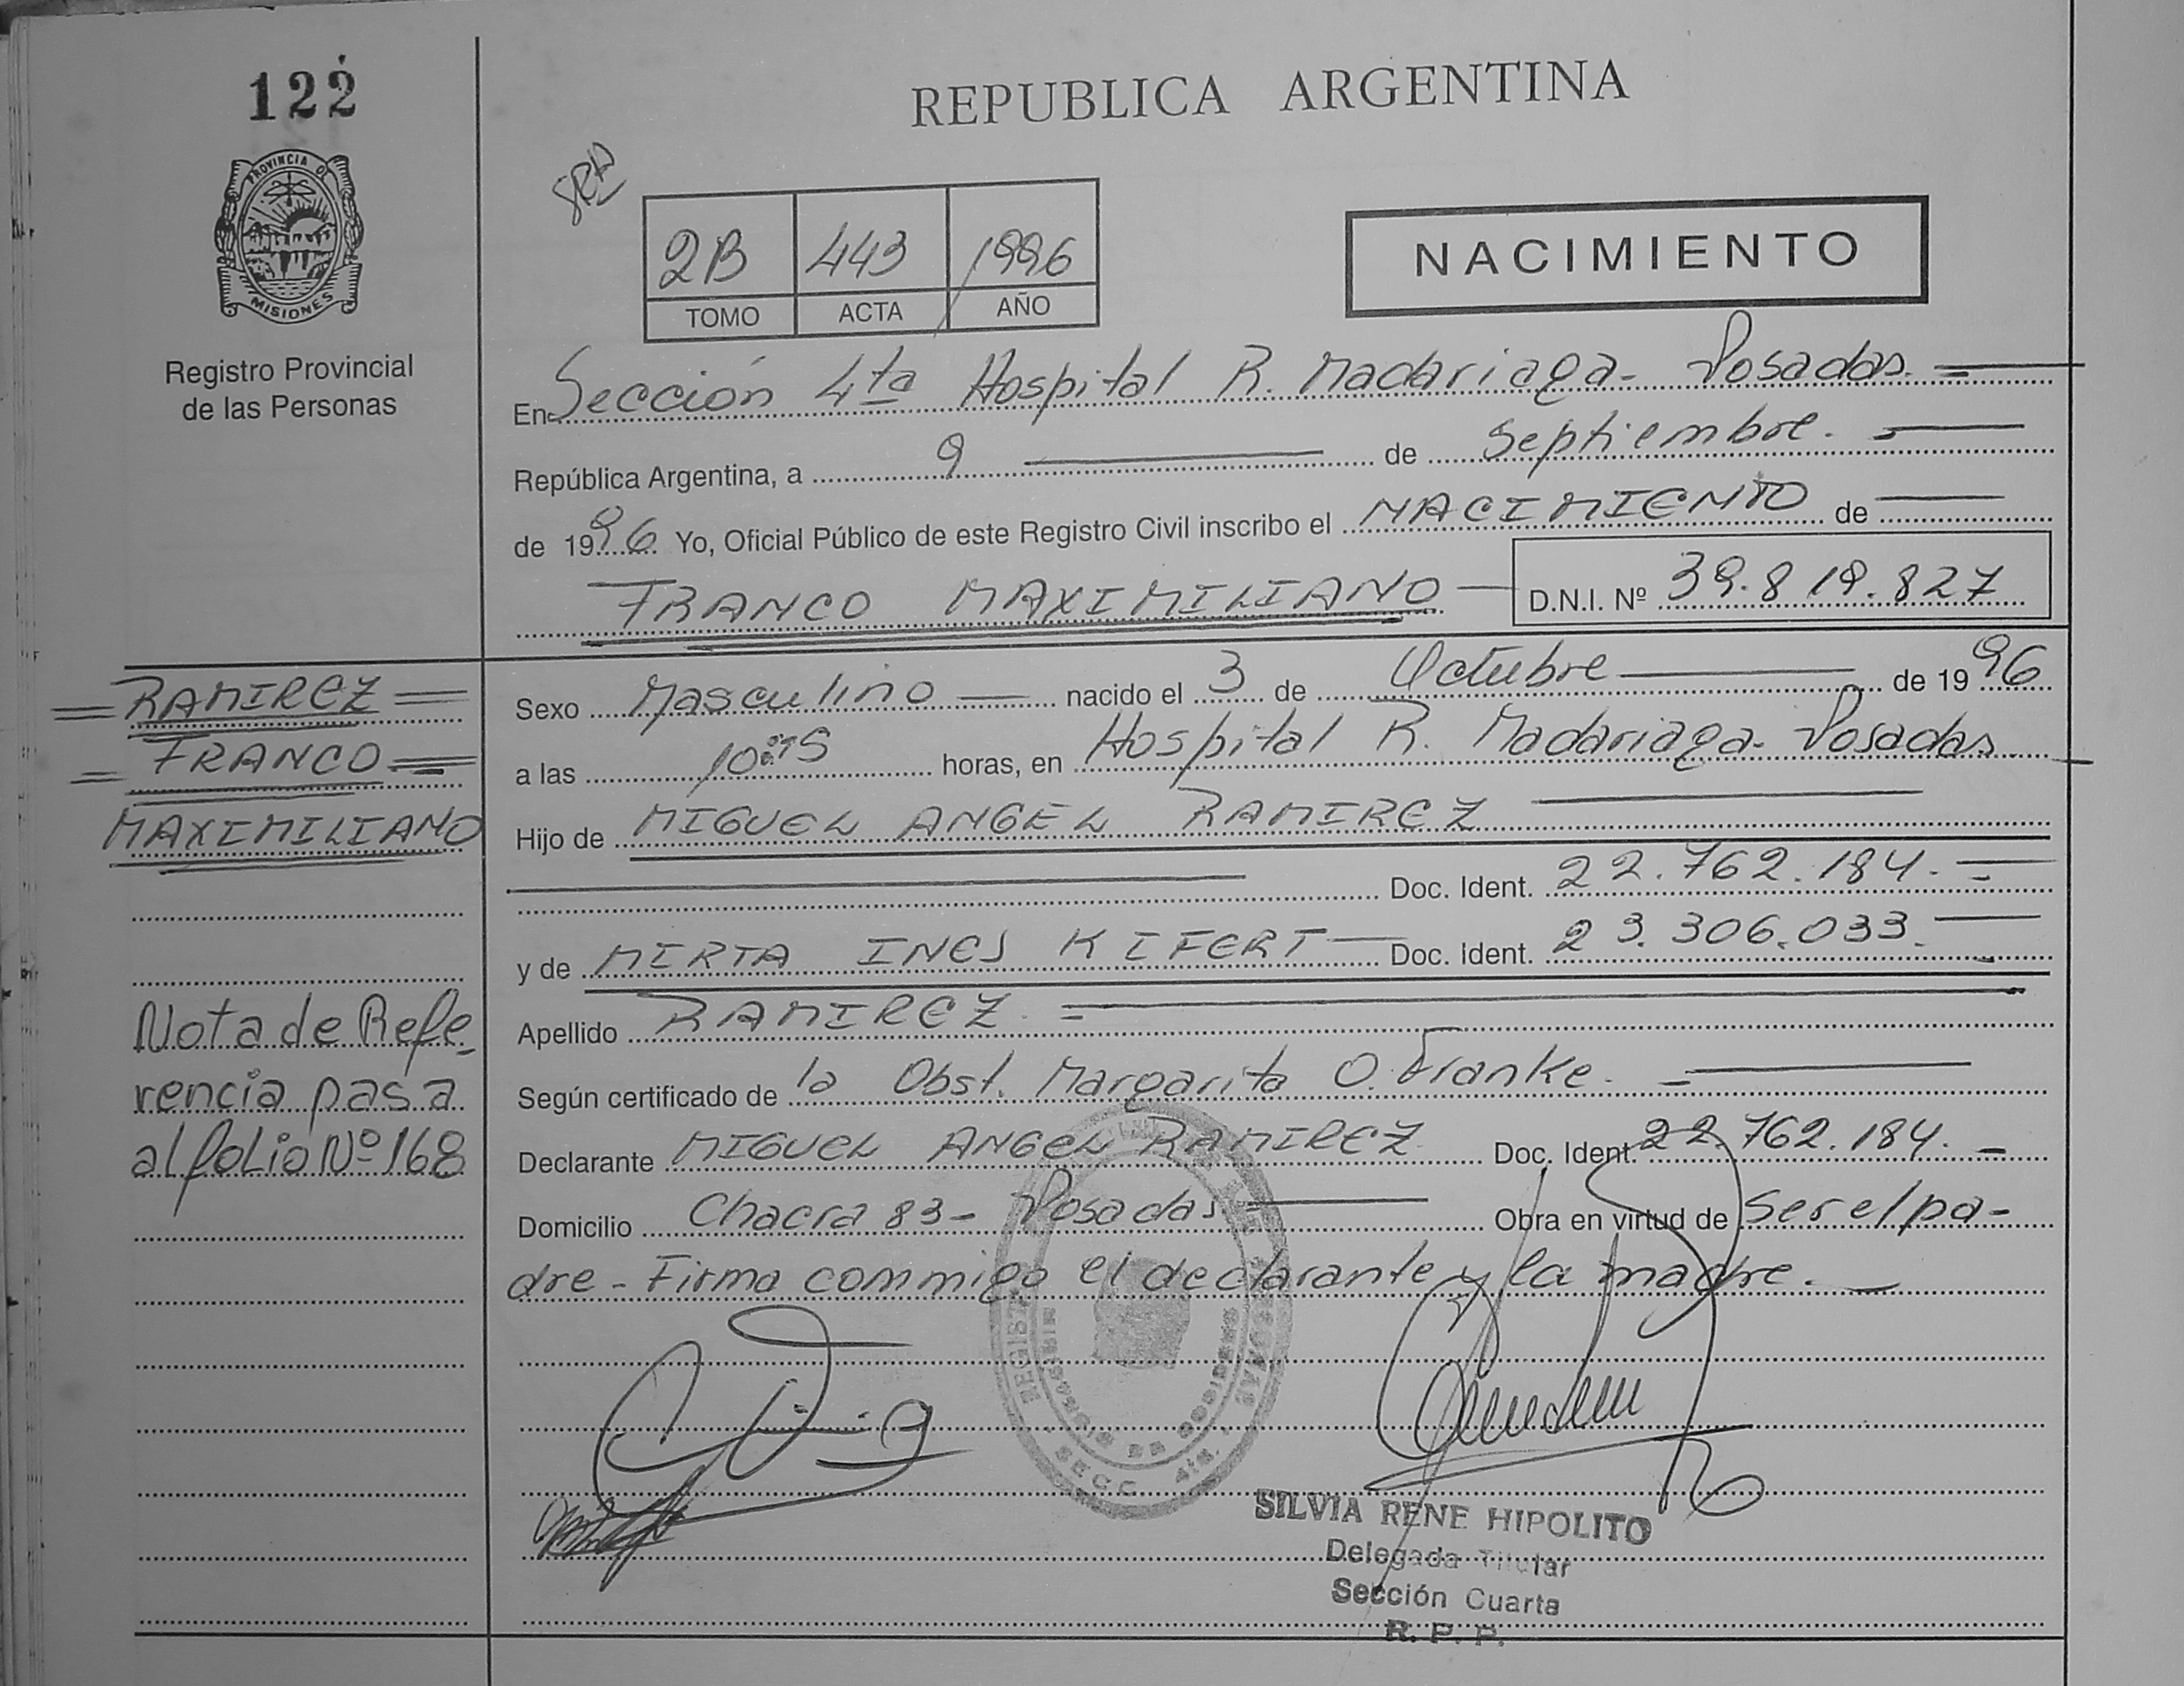 122
PROVINCIA DE
MISIONES
Registro Provincial
de las Personas
REPUBLICA ARGENTINA
SRH
2B 443 1996
TOMO ACTA AÑO
NACIMIENTO
En Sección 4ta Hospital R. Madariaga - Posadas.
República Argentina, a 9 de Septiembre.
de 1996 Yo, Oficial Público de este Registro Civil inscribo el NACIMIENTO de
FRANCO MAXIMILIANO D.N.I. Nº 39.819.827
RAMIREZ
FRANCO
MAXIMILIANO
Sexo Masculino nacido el 3 de Octubre de 1996
a las 10:15 horas, en Hospital R. Madariaga - Posadas
Hijo de MIGUEL ANGEL RAMIREZ
Doc. Ident. 22.762.184.
y de MIRTA INES KIFERT Doc. Ident. 23.306.033.
Apellido RAMIREZ
Según certificado de la Obst. Margarita O. Franke.
Declarante MIGUEL ANGEL RAMIREZ Doc. Ident. 22.762.184.
Domicilio Chacra 83 - Posadas Obra en virtud de ser el pa-
dre - Firma commigo el declarante y la madre.
Nota de Refe-
rencia pasa
al folio Nº 168
MINISTERIO DE GOBIERNO
SECC. 4ta.
SILVIA RENE HIPOLITO
Delegada Titular
Sección Cuarta
R. P. P.